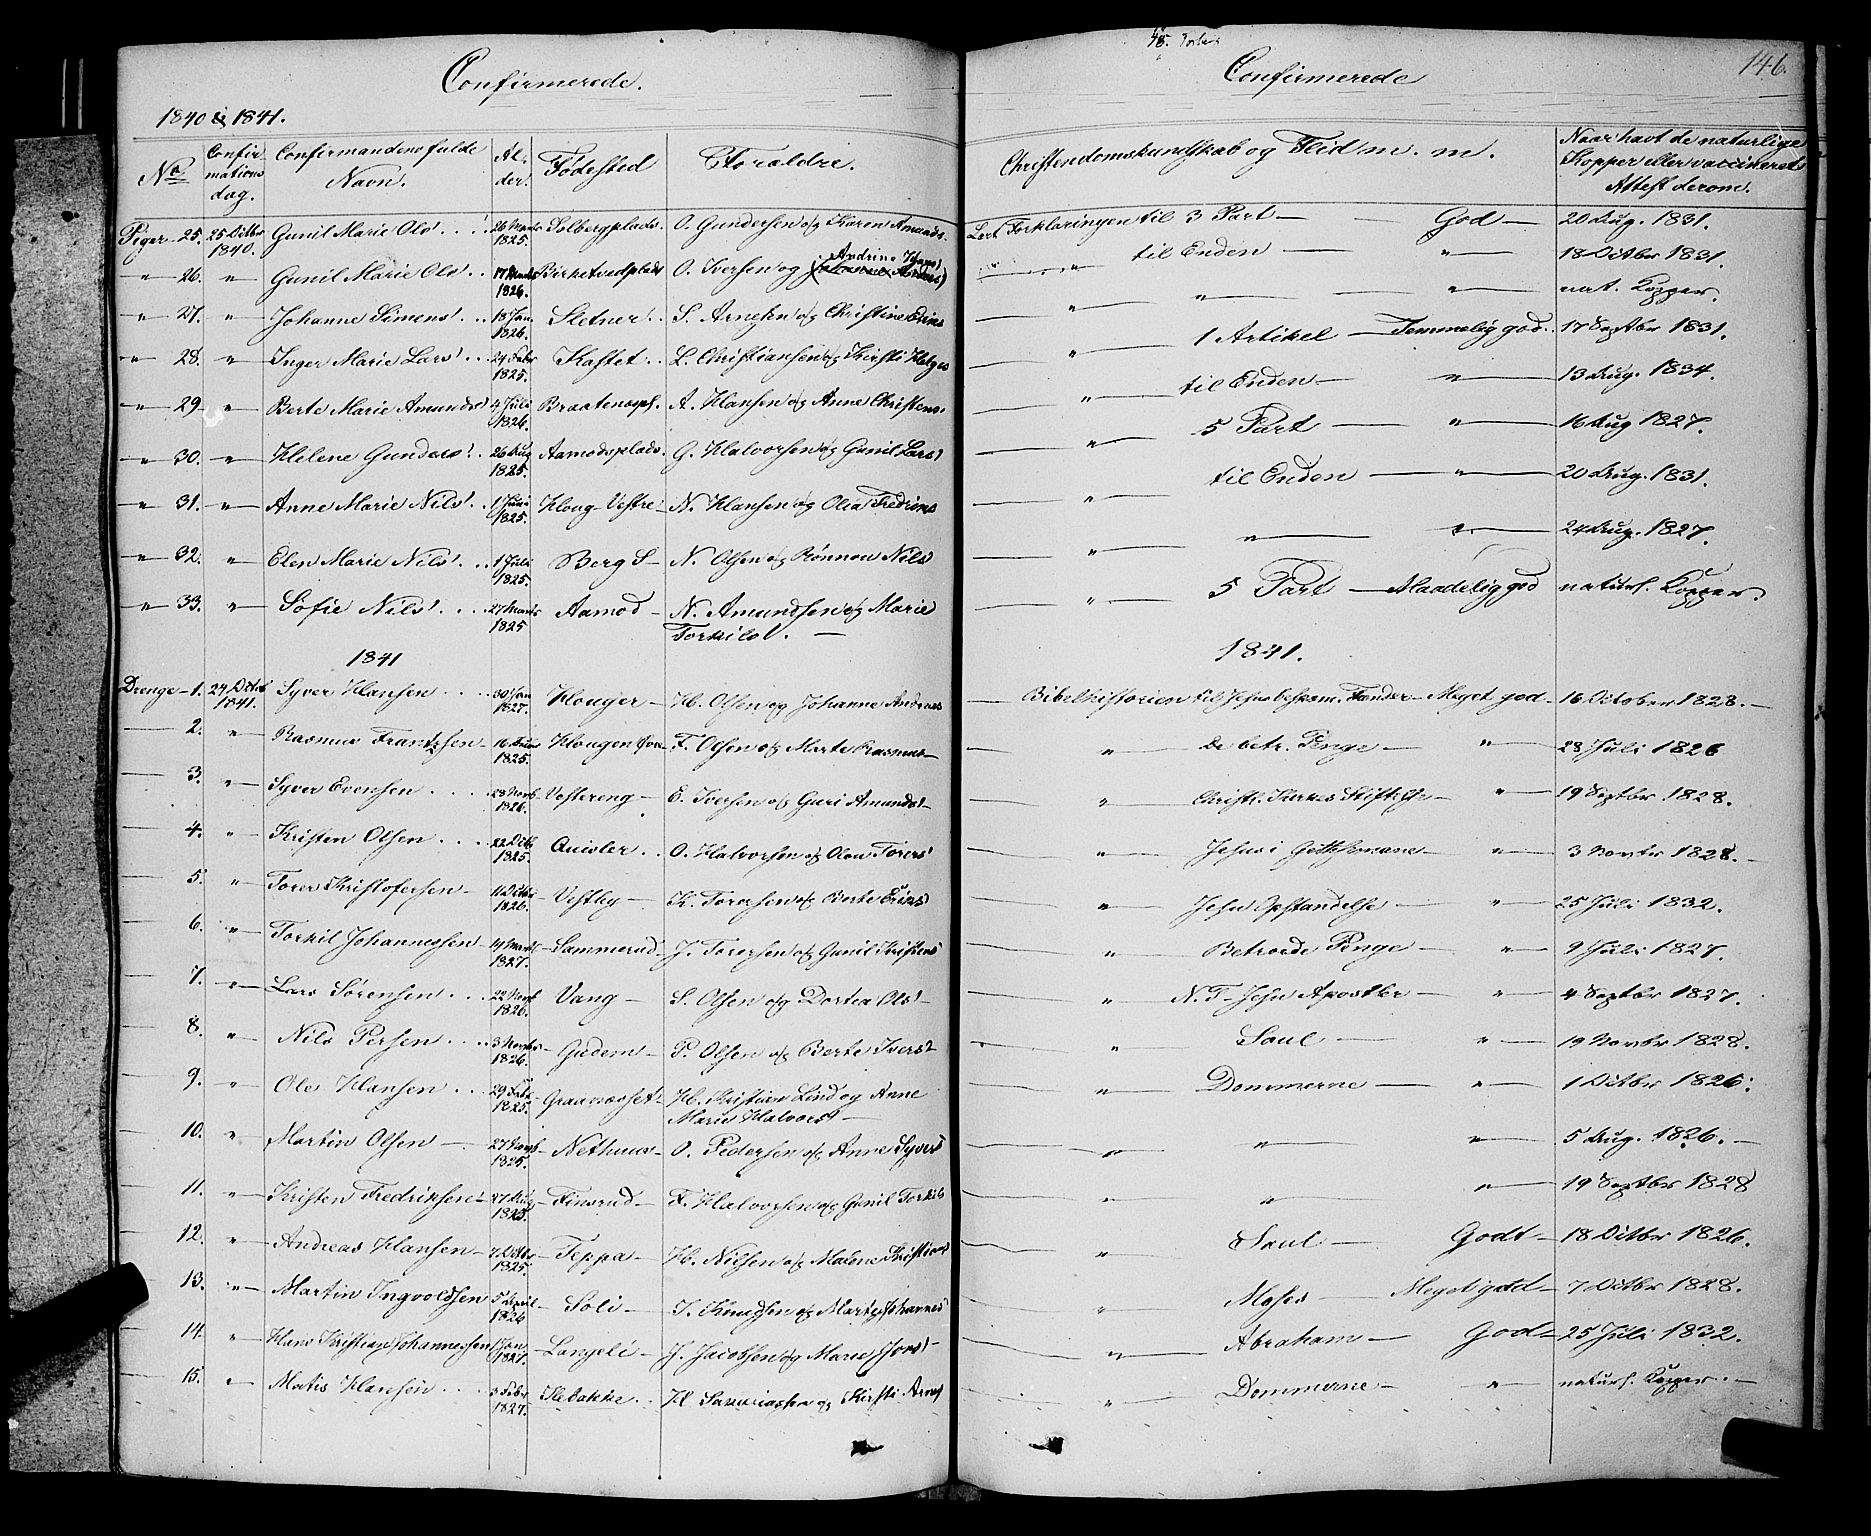 Confirmerede.
1840 & 1841.
No Confirmations dag. Confirmandens fulde Navn. Alder. Fødested Foræeldre.
Piger 25. 25 Octbr 1840. Gunil Marie Ols 26 Marts 1825. Solbergplads. O. Gundersen og Karen Amunds
" 26. " Gunil Marie Ols 17 Marts 1826. Birketvedplads O. Iversen og Andrine
" 27. " Johanne Simens 18 Jan 1826. Sletner S. Arnesen og Christine
" 28. " Inger Marie Lars 24 Febr 1825. Kastet L. Christiansen og Kirsti Helges
" 29 " Berte Marie Amunds 4 Juli 1826. Braatenspl. A. Hansen og Anne Christens
" 30. " Helene Gunders 26 Aug 1825. Aamodsplads G. Halvorsen og Gunil Lars
" 31. " Anne Marie Nils 1 Juni 1825. Houg Vestre N. Hansen og Olea Fredriks
" 32. " Elen Marie Nils 1 Juli 1825. Berg S N. Olsen og Rønnou Nils
" 33. " Sofie Nils 27 Marts 1825 Aamod N. Amundsen og Marie
Torkils
1841
Drenge 1. 24 Octbr 1841. Syver Hansen 30 Jan 1827. Houger H. Olsen og Johanne Andreas
2. " Rasmus Frantzsen 16 1825. Hougen F. Olsen og Marte Rasmus
3. " Syver Evensen 28 Novb 1826. Vestereng E. Iversen og Guri Amunds
4. " Kristen Olsen 22 Octb 1825. Quisler O. Halvorsen og Olea Torers
5. " Torer Kristofersen 11 Octbr 1826. Vestby K. Torersen og Berte
6. " Torkil Johannessen 19 Marts 1827. Sammerud J. Torersen og Gunil Kristens
7. " Lars Sørensen 22 Novb 1826. Vang S. Olsen og Dortea Ols
8. " Nils Persen 3 Novbr 1826. Gudem P. Olsen og Berte Ivers
9. " Ole Hansen 29 Feb 1825. Graanæsset H. Kristian Lind og Anne
Marie Halvors
10. " Martin Olsen 27 Novb 1825. O. Pedersen og Anne Syvers
11. " Kristen Fredriksen 27 Aug 1825. Finsrud F. Halvorsen og Gunil Torkils
12. " Andreas Hansen 7 Octbr 1825. Teppa H. Nilsen og Malene Kristians
13. " Martin Ingvoldsen 5 April 1826 Soli I. Knudsen og Marte Johannes
14. " Hans Kristian Johannessen Jan 1827. Langeli J. Jacobsen og Marie
15. " Matis Hansen 3 Febr 1827. Slebakke H og Kirsti Arnes
48.
Confirmerede
146.
Christendomskundskab og Flid m. m. Naar havt de naturlige Kopper eller vaccineret Attest derom.
Lært Forklaringen til 3 Part God 20 Aug. 1831.
" til Enden " 18 Octbr 1831.
" " " nat. Kopper.
" 1 Artikel Temmelig god. 17 Septbr 1831.
" til Enden " 13 Aug. 1834.
" 5 Part " 16 Aug 1827.
" til Enden " 20 Aug. 1831.
" " " 24 Aug. 1827.
" 5 Part Maadelig god naturl. Kopper.
1841.
Bibelhistorien til Jesus Meget god 16 October 1828.
" de betr. Penge " 28 Juli 1826
" Christl. Kirkes Stiftelse " 19 Septbr 1828.
" Jesus i Getthsemane " 3 Novbr 1828.
" Jesu Opstandelse " 25 Juli 1832.
" Betroede Penge " 9 Juli 1827.
" N. T. Jesu Apostler " 4 Septbr 1827.
" Saul " 19 Novbr 1828.
" Dommerne " 1 Octbr 1826.
" " " 5 Aug. 1826.
" " " 19 Septbr 1828
" Saul Godt 18 Octbr 1826.
" Moses Meget god 7 Octbr 1828.
" Abraham God 25 Juli 1832.
" Dommerne " naturl. Kopper.